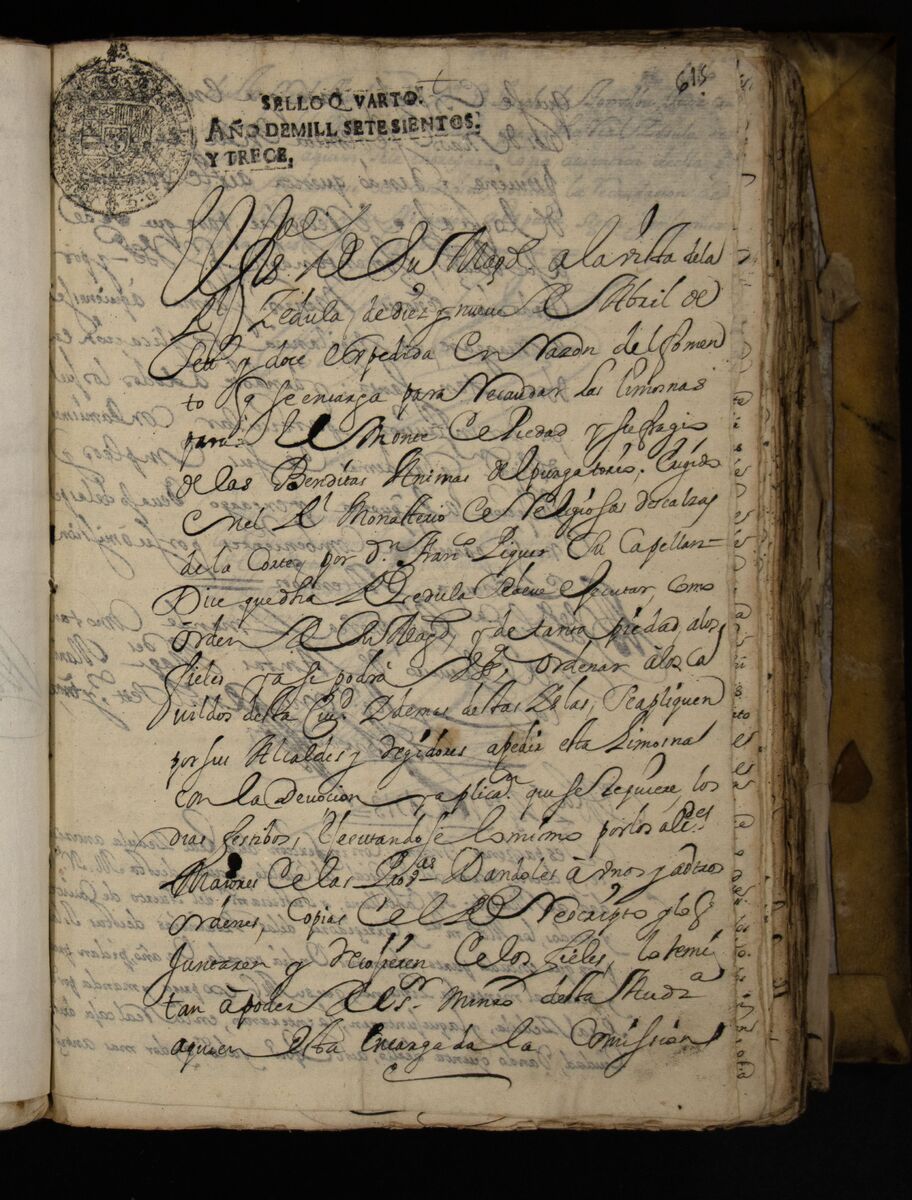 615
SELLO QVARTO.
AÑO DE MILL SETESIENTOS,
Y TRECE,
de Su Magd. a la vista de la
Rl Zedula de diez y nueve de Abril de
Setts y doce expedida en Razon del fomen
to q se encarga para Recaudar las limosnas
para el Monte de Piedad y sufragio
de las Benditas Animas del purgatorio, erigido
en el Rl Monasterio de Religiosas descalzas
de la Corte, por Dn Franco Piquer Su Capellan =
Dice que dha Rl Zedula se deve executar, como
orden de Su Magd, y de tanta piedad, a los
fieles ya se podra ordenar a los Ca
vildos desta Ciud. demas destas Islas, se apliquen
por sus Alcaldes y Regidores a pedir esta limosna
con la Devocion y aplican. que se requiere los
dias festibos, executandose lo mismo por los alcdes
Maiores de las Provas Dandoles a unos y a otros
ordenes, copias del Rl Rescripto y lo q
Juntaren y recojieren de los fieles, lo remi
tan a poder del Sr. Minro desta Audza
a quien esta encargada la Comission